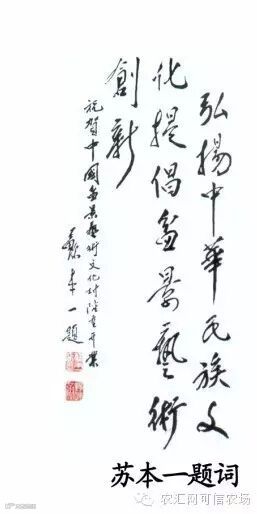 弘揚中華民族文
化提倡盆景藝術
創新
祝賀中國盆景藝術文化村隆重开業
蘇本一題
苏本一题词
农汇网可信农场